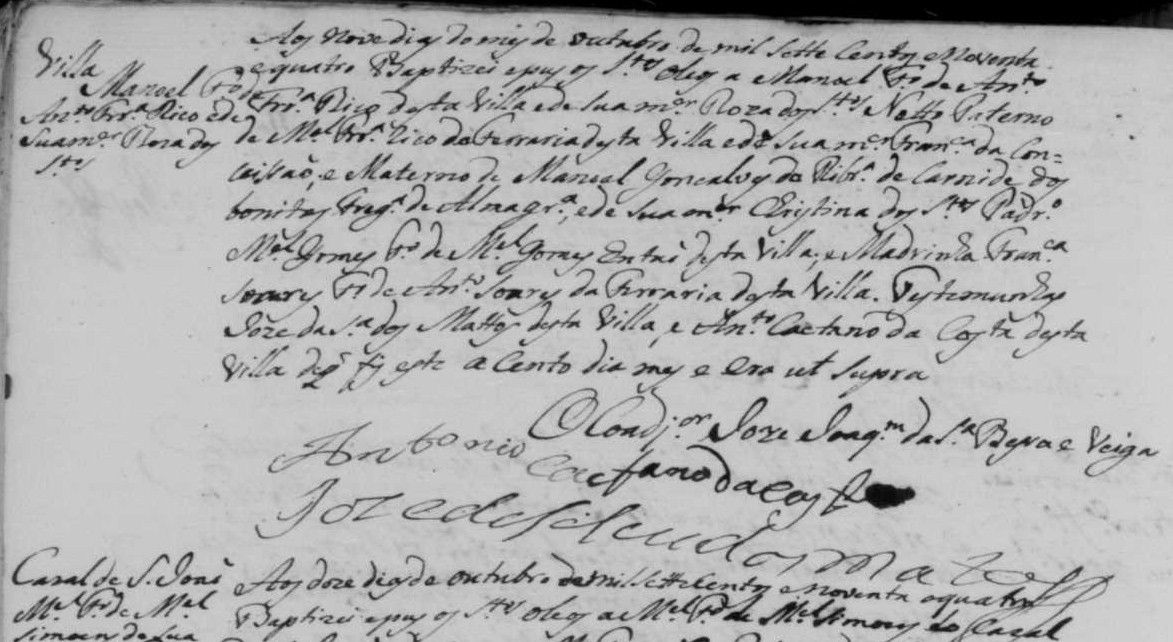 Villa
Manoel Fo de
Anto Frra Rico e de
Sua mer Roza dos
Stos
Aos nove dias do mes de outubro de mil sette Centos e Noventa
e quatro Baptizei e pus os Stos oleos a Manoel Fo de Anto
Frra Rico desta Villa e de sua mer Roza dos Stos Netto Paterno
de Mel Frra Rico da Ferraria desta Villa e de sua mer Franca da Con=
caissaõ, e Materno de Manoel Goncalves da Ribra de Carnide dos
bonitos Frega de Almagra, e de sua mer Christina dos Stos Padro
Mel Gomes Fo de Mel Gomes desta Villa, e Madrinha Franca
Soares Fa de Anto Soares da Ferraria desta Villa. Testemunhas
Joze da Sa dos Mattos desta Villa, e Anto Caetano da Costa desta
Villa de q fis este a Cento dia mes e era ut supra
O Coadjor Joze Joaqm da Sa e Veiga
Antonio
Caetano da Costa
Joze da Silva dos Matos
Cazal de S. Joaõ
Mel Fo de Mel
Simoens de sua
Aos doze dias de outubro de mil sette Centos e noventa e quatro
Baptizei e pus os Stos oleos a Mel Fo de Mel Simoens do Cazal